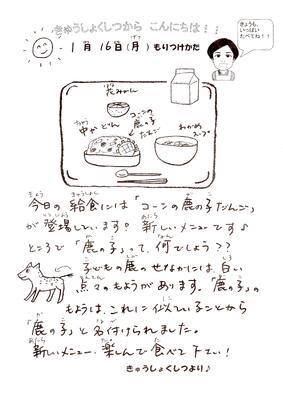 きゅうしょくしつから こんにちは!!
きょうも、
いっぱい
たべてね!!
1月 16日(月) もりつけかた
花みかん
コーンの
鹿の子
だんご
中かどん
わかめ
スープ
今日の 給食には「コーンの鹿の子だんご」
が 登場しています? 新しいメニューです♪
ところで「鹿の子」って、何でしょう??
子どもの鹿のせなかには、白い
点々のもようがあります。「鹿の子」の
もようは、これに似ていることから
「鹿の子」と名付けられました。
新しいメニュー、楽しんで食べて下さい!
きゅうしょくしつより♪